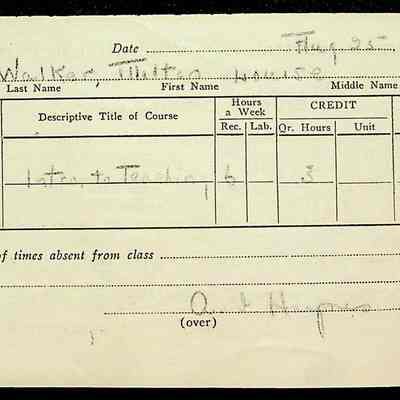 Date Aug 25
Walker, Milton Louise
Last Name First Name Middle Name
Descriptive Title of Course Hours a Week CREDIT
Rec. Lab. Qr. Hours Unit
Intro. to Teaching 6 3
of times absent from class
(over)